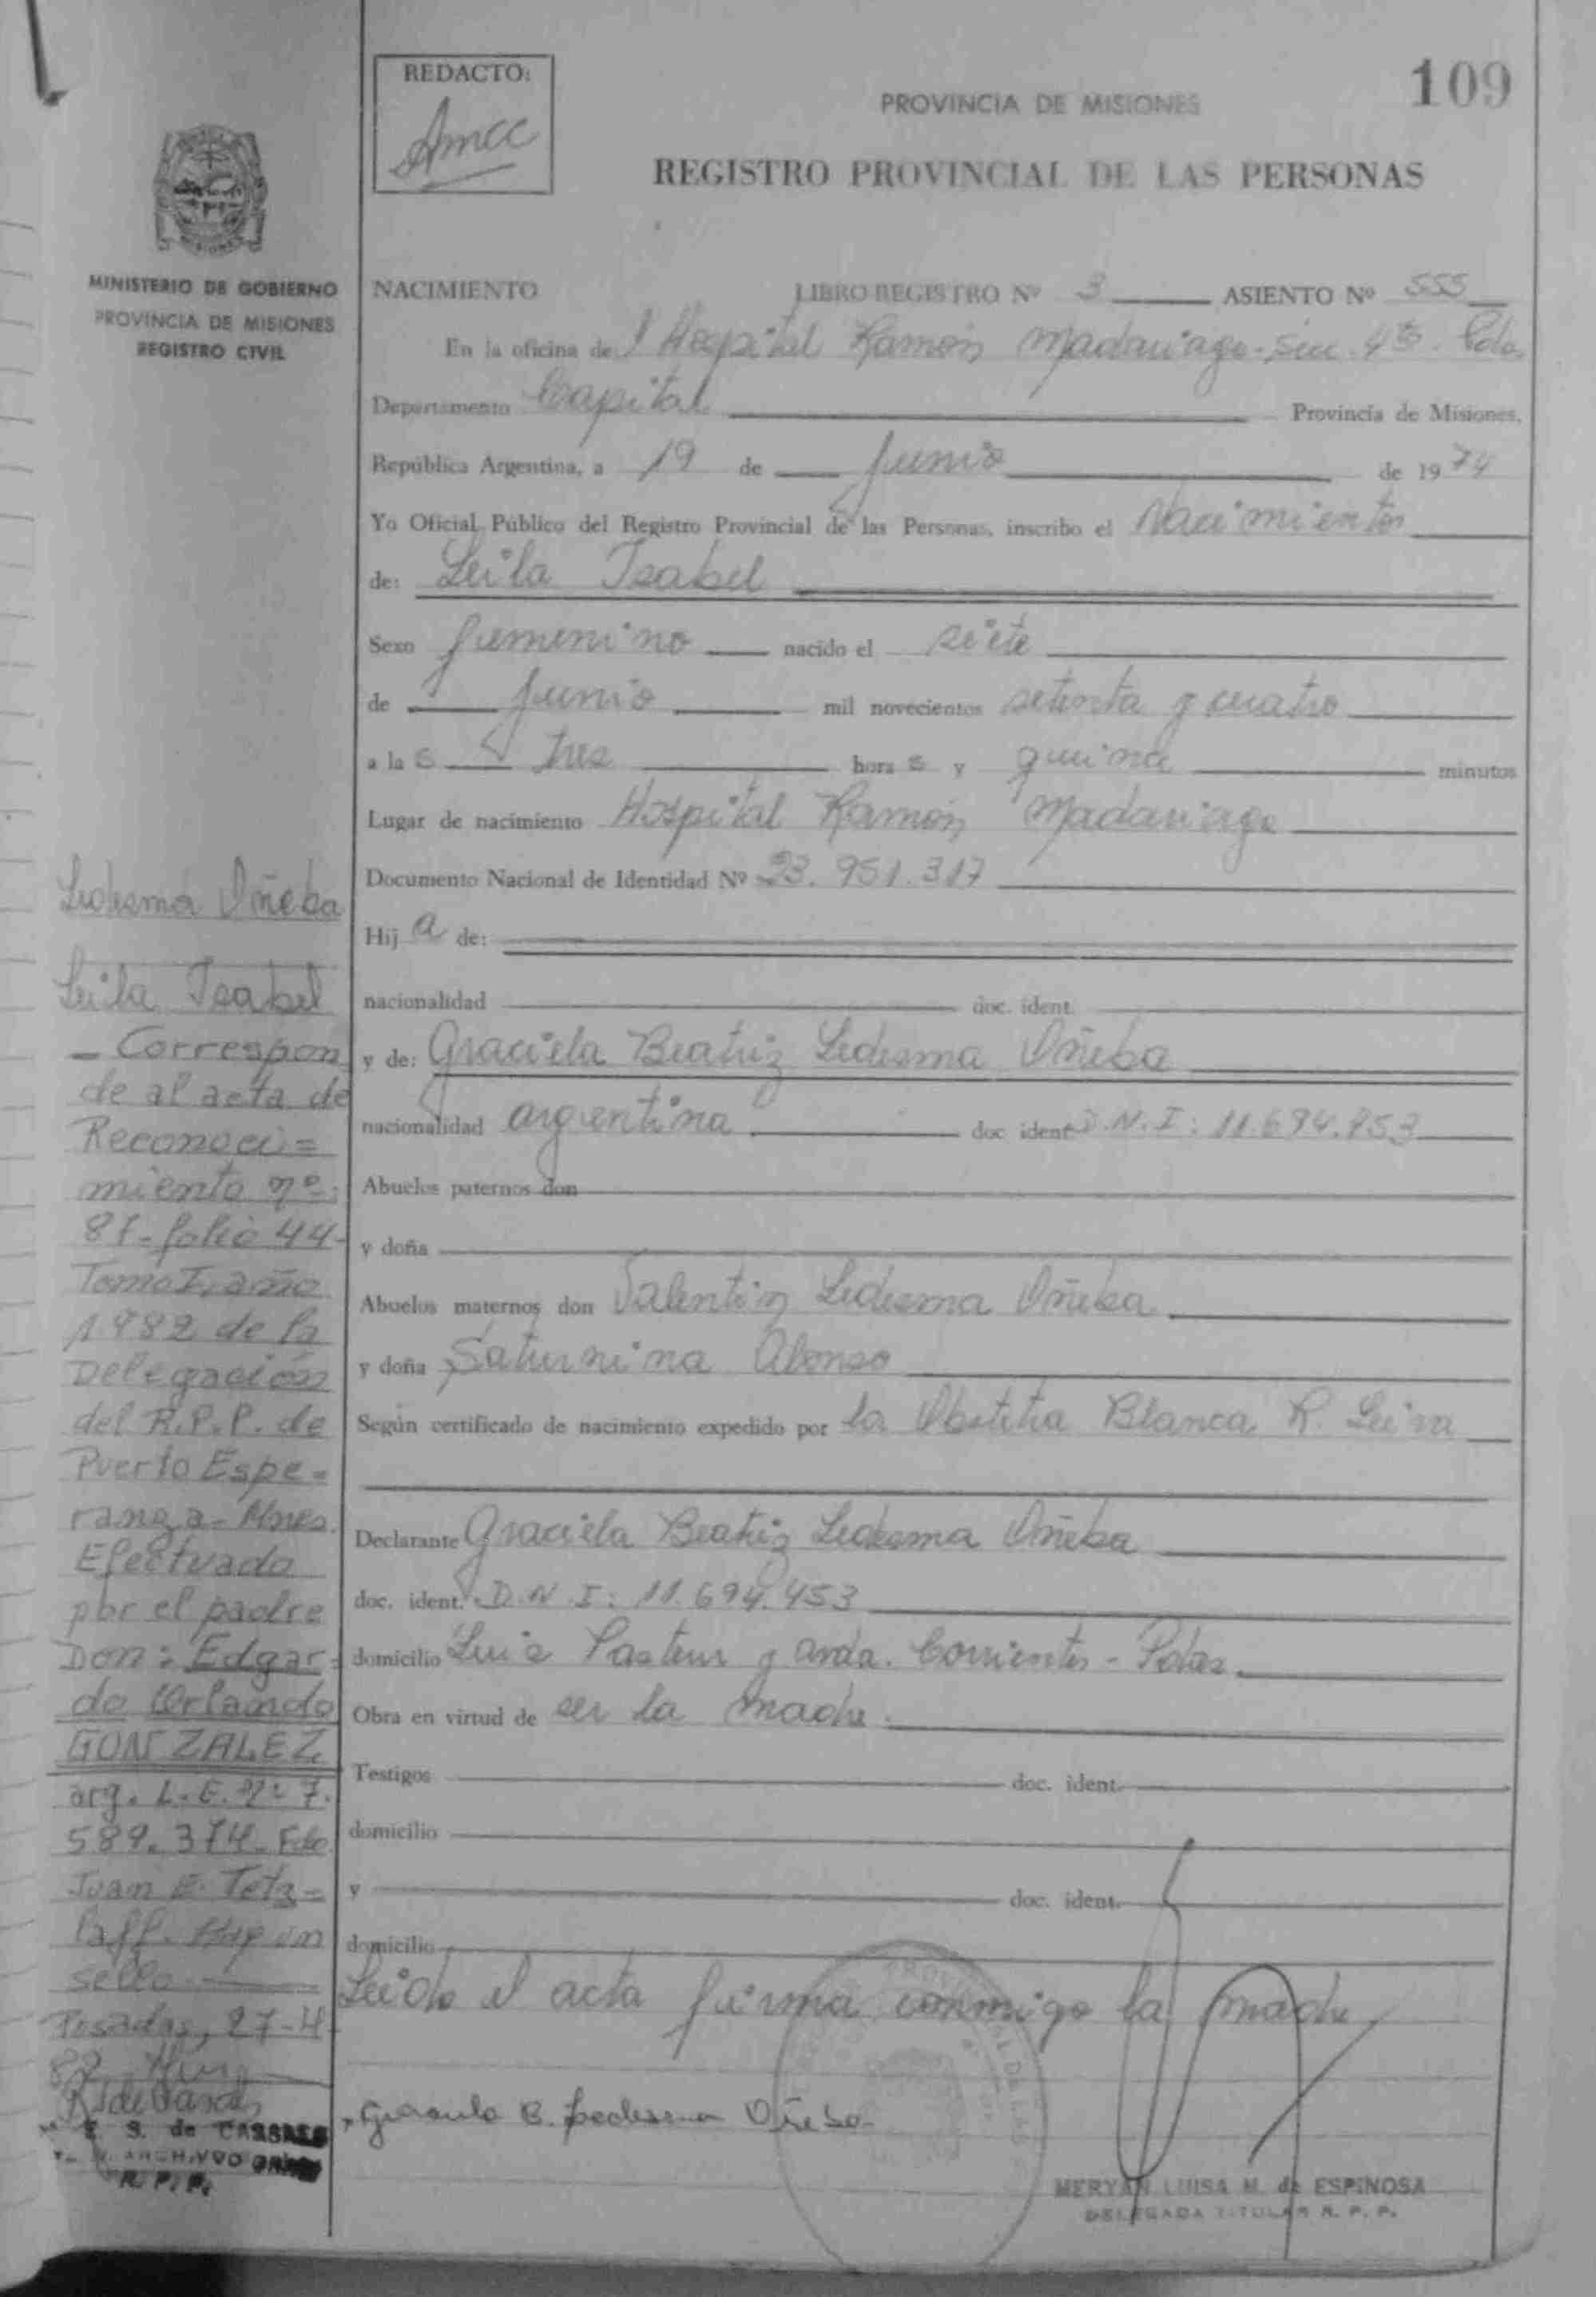 109
REDACTO:
PROVINCIA DE MISIONES
REGISTRO PROVINCIAL DE LAS PERSONAS
MINISTERIO DE GOBIERNO
PROVINCIA DE MISIONES
REGISTRO CIVIL
NACIMIENTO LIBRO REGISTRO Nº 3 ASIENTO Nº 555
En la oficina del Hospital Ramón Madariaga - Sec. 4ta. Pdas
Departamento Capital Provincia de Misiones,
República Argentina, a 19 de Junio de 1974
Yo Oficial Público del Registro Provincial de las Personas, inscribo el Nacimiento
de: Leila Isabel
Sexo femenino nacido el siete
de Junio mil novecientos setenta y cuatro
a las tres horas y quince minutos
Lugar de nacimiento Hospital Ramón Madariaga
Documento Nacional de Identidad Nº 23.951.317
Hija de:
nacionalidad doc. ident.
y de: Graciela Beatriz Ledesma Oñeba
nacionalidad argentina doc ident D.N.I: 11.694.453
Abuelos paternos don
y doña
Abuelos maternos don Valentín Ledesma Oñeba
y doña Saturnina Alonso
Según certificado de nacimiento expedido por la Obstetra Blanca R. Leiva
Declarante Graciela Beatriz Ledesma Oñeba
doc. ident. D.N.I: 11.694.453
domicilio Luis Pasteur y avda. Corrientes - Pdas.
Obra en virtud de ser la madre.
Testigos doc. ident.
domicilio
y doc. ident.
domicilio
Leida el acta firma conmigo la madre
Graciela B. Ledesma Oñeba
MERYAN LUISA M. de ESPINOSA
DELEGADA TITULAR R. P. P.
Ledesma Oñeba
Leila Isabel
- Correspon
de al acta de
Reconoci=
miento nº:
87-folio 44-
Tomo I, año
1982 de la
Delegación
del R.P.P. de
Puerto Espe=
ranza-Mnes.
Efectuado
por el padre
Don: Edgar=
do Orlando
GONZALEZ
arg. L.E. nº 7.
589.374- Fdo
Juan E. Tetz=
laff. Hay un
sello
Posadas, 27-4-
82
S. de CASSALES
ARCHIVO GRAL
R. P. P.